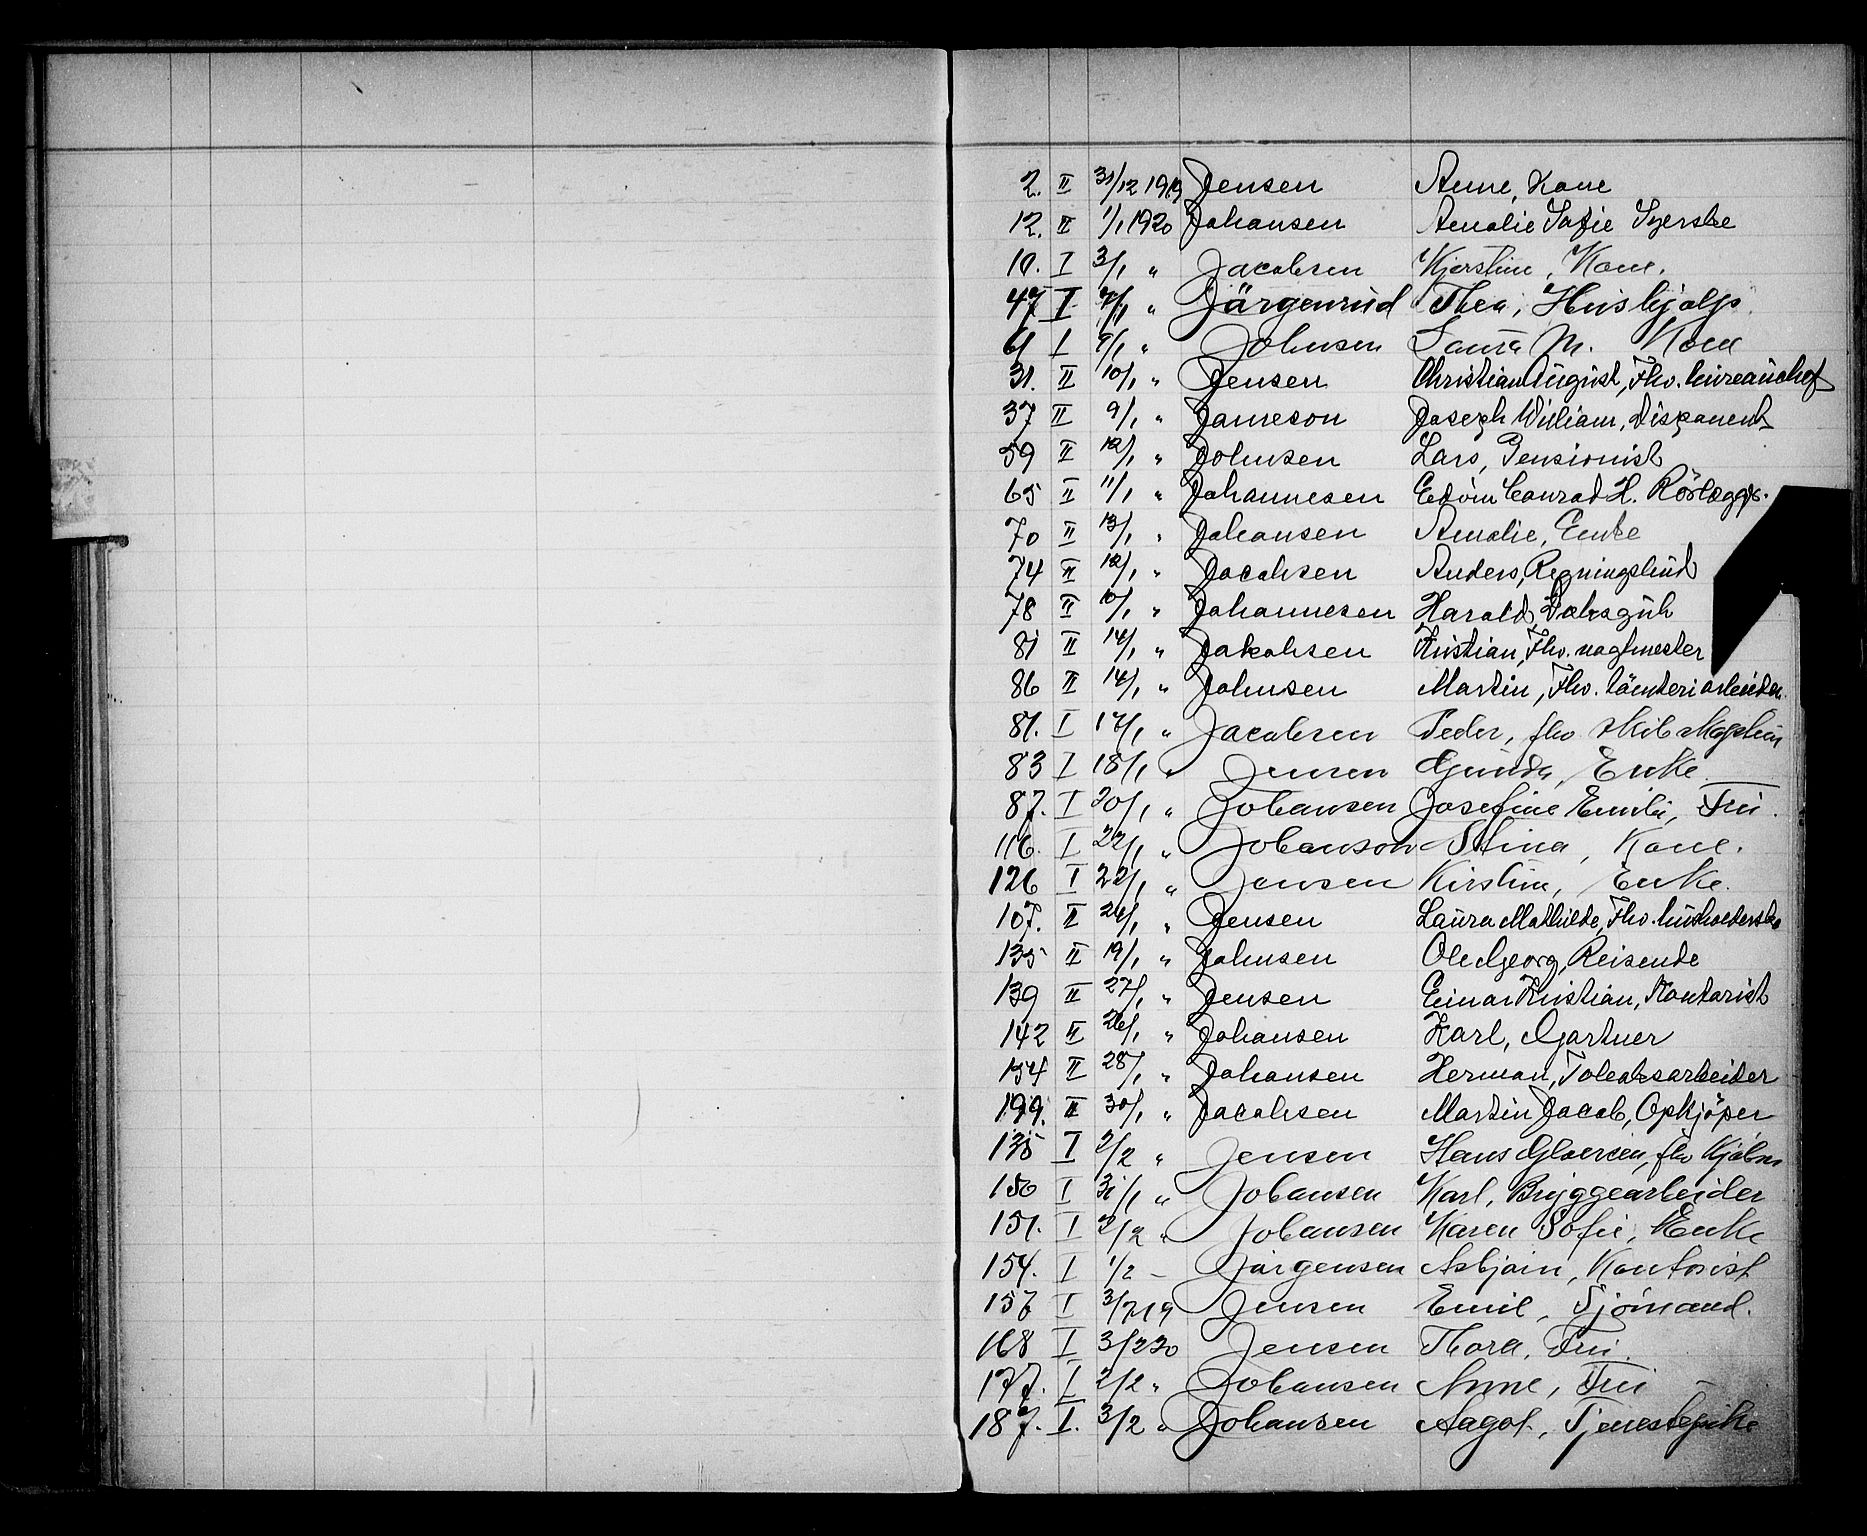 2. II 31/12 1919 Jensen Anne, Kone
12. II 1/1 1920 Johansen Amalie Sofie Syerske
10. I 3/1 " Jacobsen Kjerstine, Kone.
47 I 7/1 " Jörgenrud Thea, Hushjælp.
61 I 9/1 " Johnsen Laura M. Kone
31. II 10/1 " Jensen Christian August, Fhv. bureauchef
37 II 9/1 " Jameson Joseph William, Disponent
59 II 12/1 " Johnsen Lars, Pensionist
65 II 11/1 " Johannesen Edvin Conrad H. Rörlægger.
70 II 13/1 " Johansen Amalie, Enke
74 II 12/1 " Jacobsen Anders, Regningsbud
78 II 10/1 " Johannesen Harald,
81 II 14/1 " Jakobsen Kristian, Fhv. vagtmester
86 II 14/1 " Johnsen Martin, Fhv. tömteriarbeider.
81. I 17/1 " Jacobsen Peder, fhv
83 I 18/1 " Jensen Gunda, Enke.
87. I 20/1 " Johansen Josefine Emilie, Fru.
116. I 22/1 " Johanson Stina, Kone.
126 I 22/1 " Jensen Kirstine, Enke.
107. II 24/1 " Jensen Laura Mathilde, Fhv. husholderske
135 II 19/1 " Johnsen Ole Georg, Reisende
139 II 27/1 " Jensen Einar Kristian, Kontorist
142 II 26/1 " Johansen Karl, Gartner
154 II 28/1 " Johansen Herman, Tobaksarbeider
199. II 30/1 " Jacobsen Martin Jacob, Opkjöper
135 I 2/2 " Jensen Hans fhv Kjøbm
150 I 31/1 " Johansen Karl, Bryggearbeider
151. I 2/2 " Johansen Karen Sofie, Enke
154. I 1/2 – Jörgensen Asbjörn, Kontorist
157 I 3/7 19 Jensen Emil, Sjömand.
168 I 3/2 20 Jensen Thora, Fru.
177. I 2/2 " Johansen Anne, Fru
187. I. 3/2 " Johansen Aagot, Tjenestepike